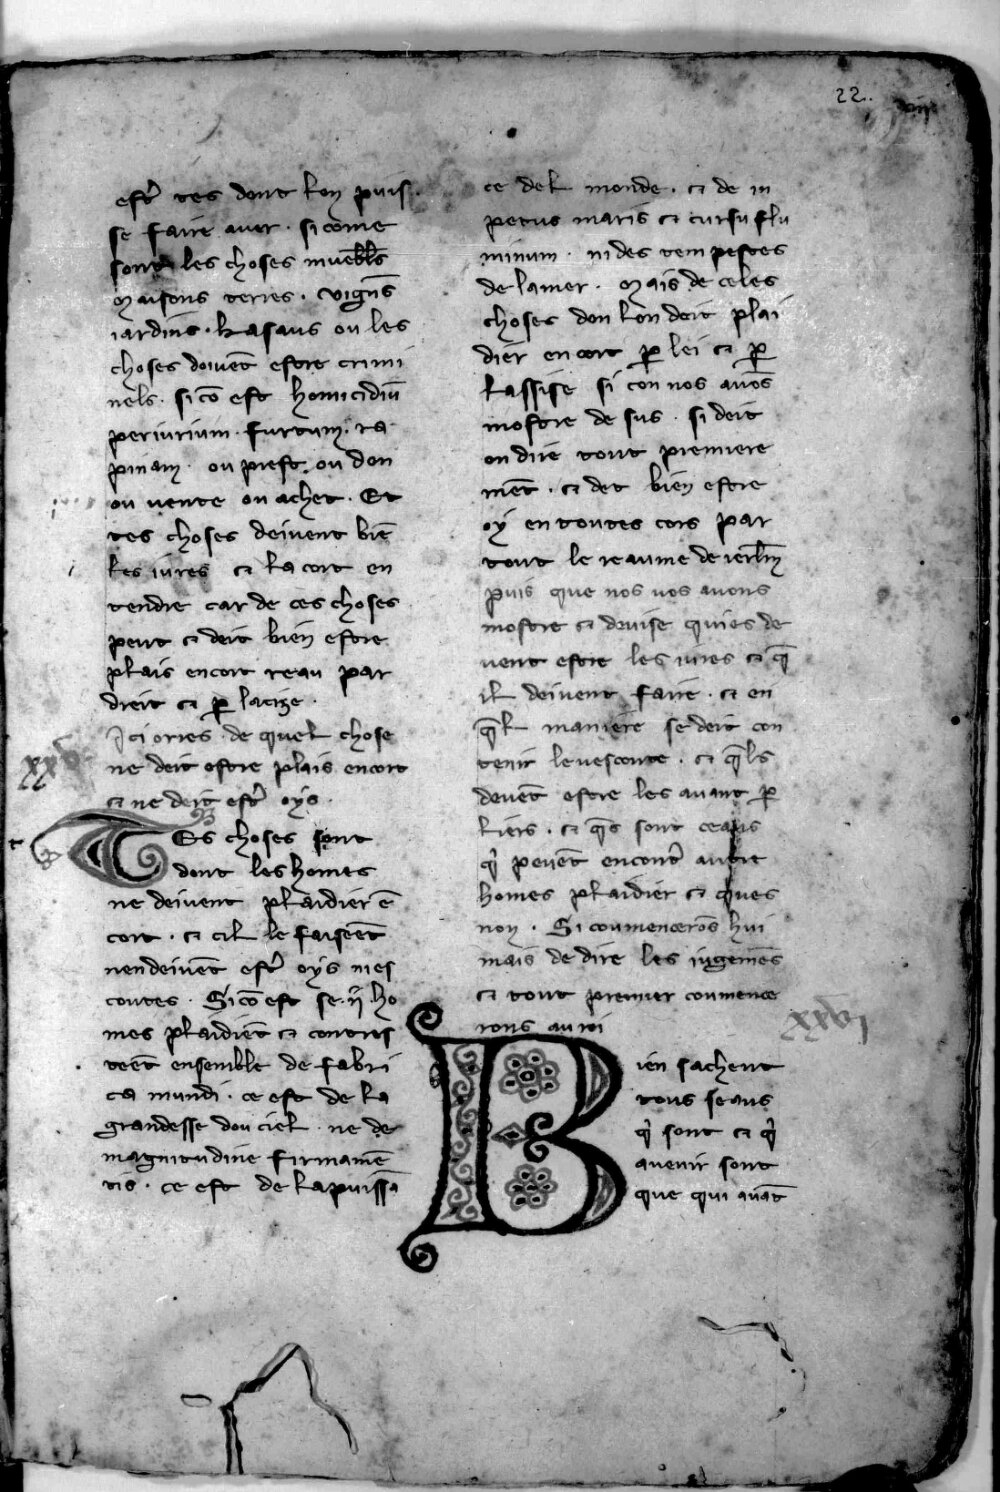 22.
estr̄ tes dont lon puis
se faire auer · si come
sont les choses muebłs
maisons terres · vign̄s
iardins · kasaus ou les
choses doiuēt estre crimi
nels · si cō est homicidiū
periurium · furtum · ra
pinam · ou prest ou don
ou uente ou achet · Et
tes choses deiuent biē
les iures et la cort en
tendre car de ces choses
peut et deit bien estre
plais encort reau par
dreit et ꝑ lacize ·
Ici ories de quel chose
ne deit estre plais encort
et ne deit estr̄ oys ·
xxv
TEs choses sont
dont les homes
ne deiuent plaidier ē
cort · et cil le faiseēt
nendeiuēt estr̄ oys nies
contes · Si cō est se · ii · ho
mes plaidiēt et contres
teēt ensemble de fabri
ca mundi · ce est de la
grandesse dou ciel · ne de
magnitudine firmamē
tis · ce est de la puissā
ce del monde · et de in
petus maris et cursu flu
minum · ni des tempestes
de lamer · Mais de celes
choses don lon deit plai
dier en cort ꝑ lei et ꝑ
lassise si con nos auōs
mostre de sus · si deit
on dire tout premiere
mēt · et det bien estre
oy en toutes cors par
tout le reaume de ierłm
puis que nos uos auons
mostre et deuise quies de
uent estre les iures et q̄
il deiuent faire · et en
q̄l maniere se deit con
tenir leuesconte · et q̄ls
deuēt estre les auant ꝑ
liers · et q̄s sont ceaus
q̇ peuēt encontr̄ autre
homes plaidier et ques
non · Si coumencerōs hui
mais de dire les iugemēs
et tout premier coumence
rons au roi
xxvi
Bien sachent
tous seaus
q̇ sont et q̇
auenir sont
que qui auāt